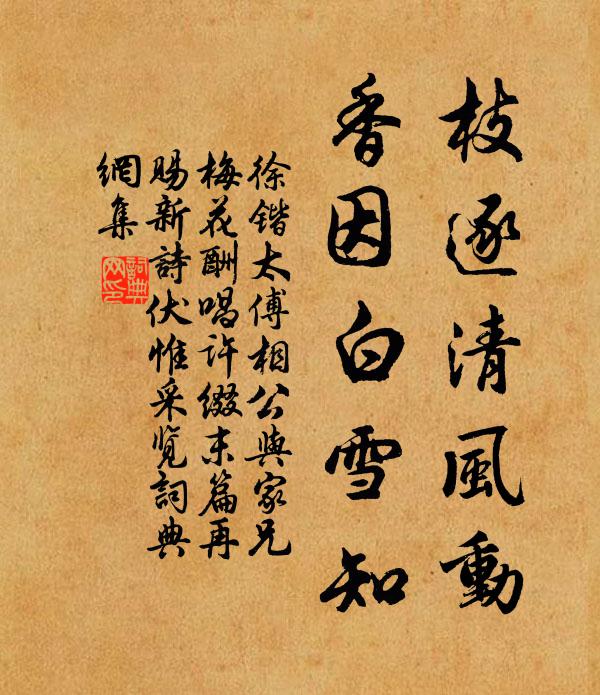 枝逐清風動
香因白雪知
徐锴太傅相公與家兄
梅花酬唱許綴末篇再
賜新詩伏惟采覽詞典
網集
詞典網印